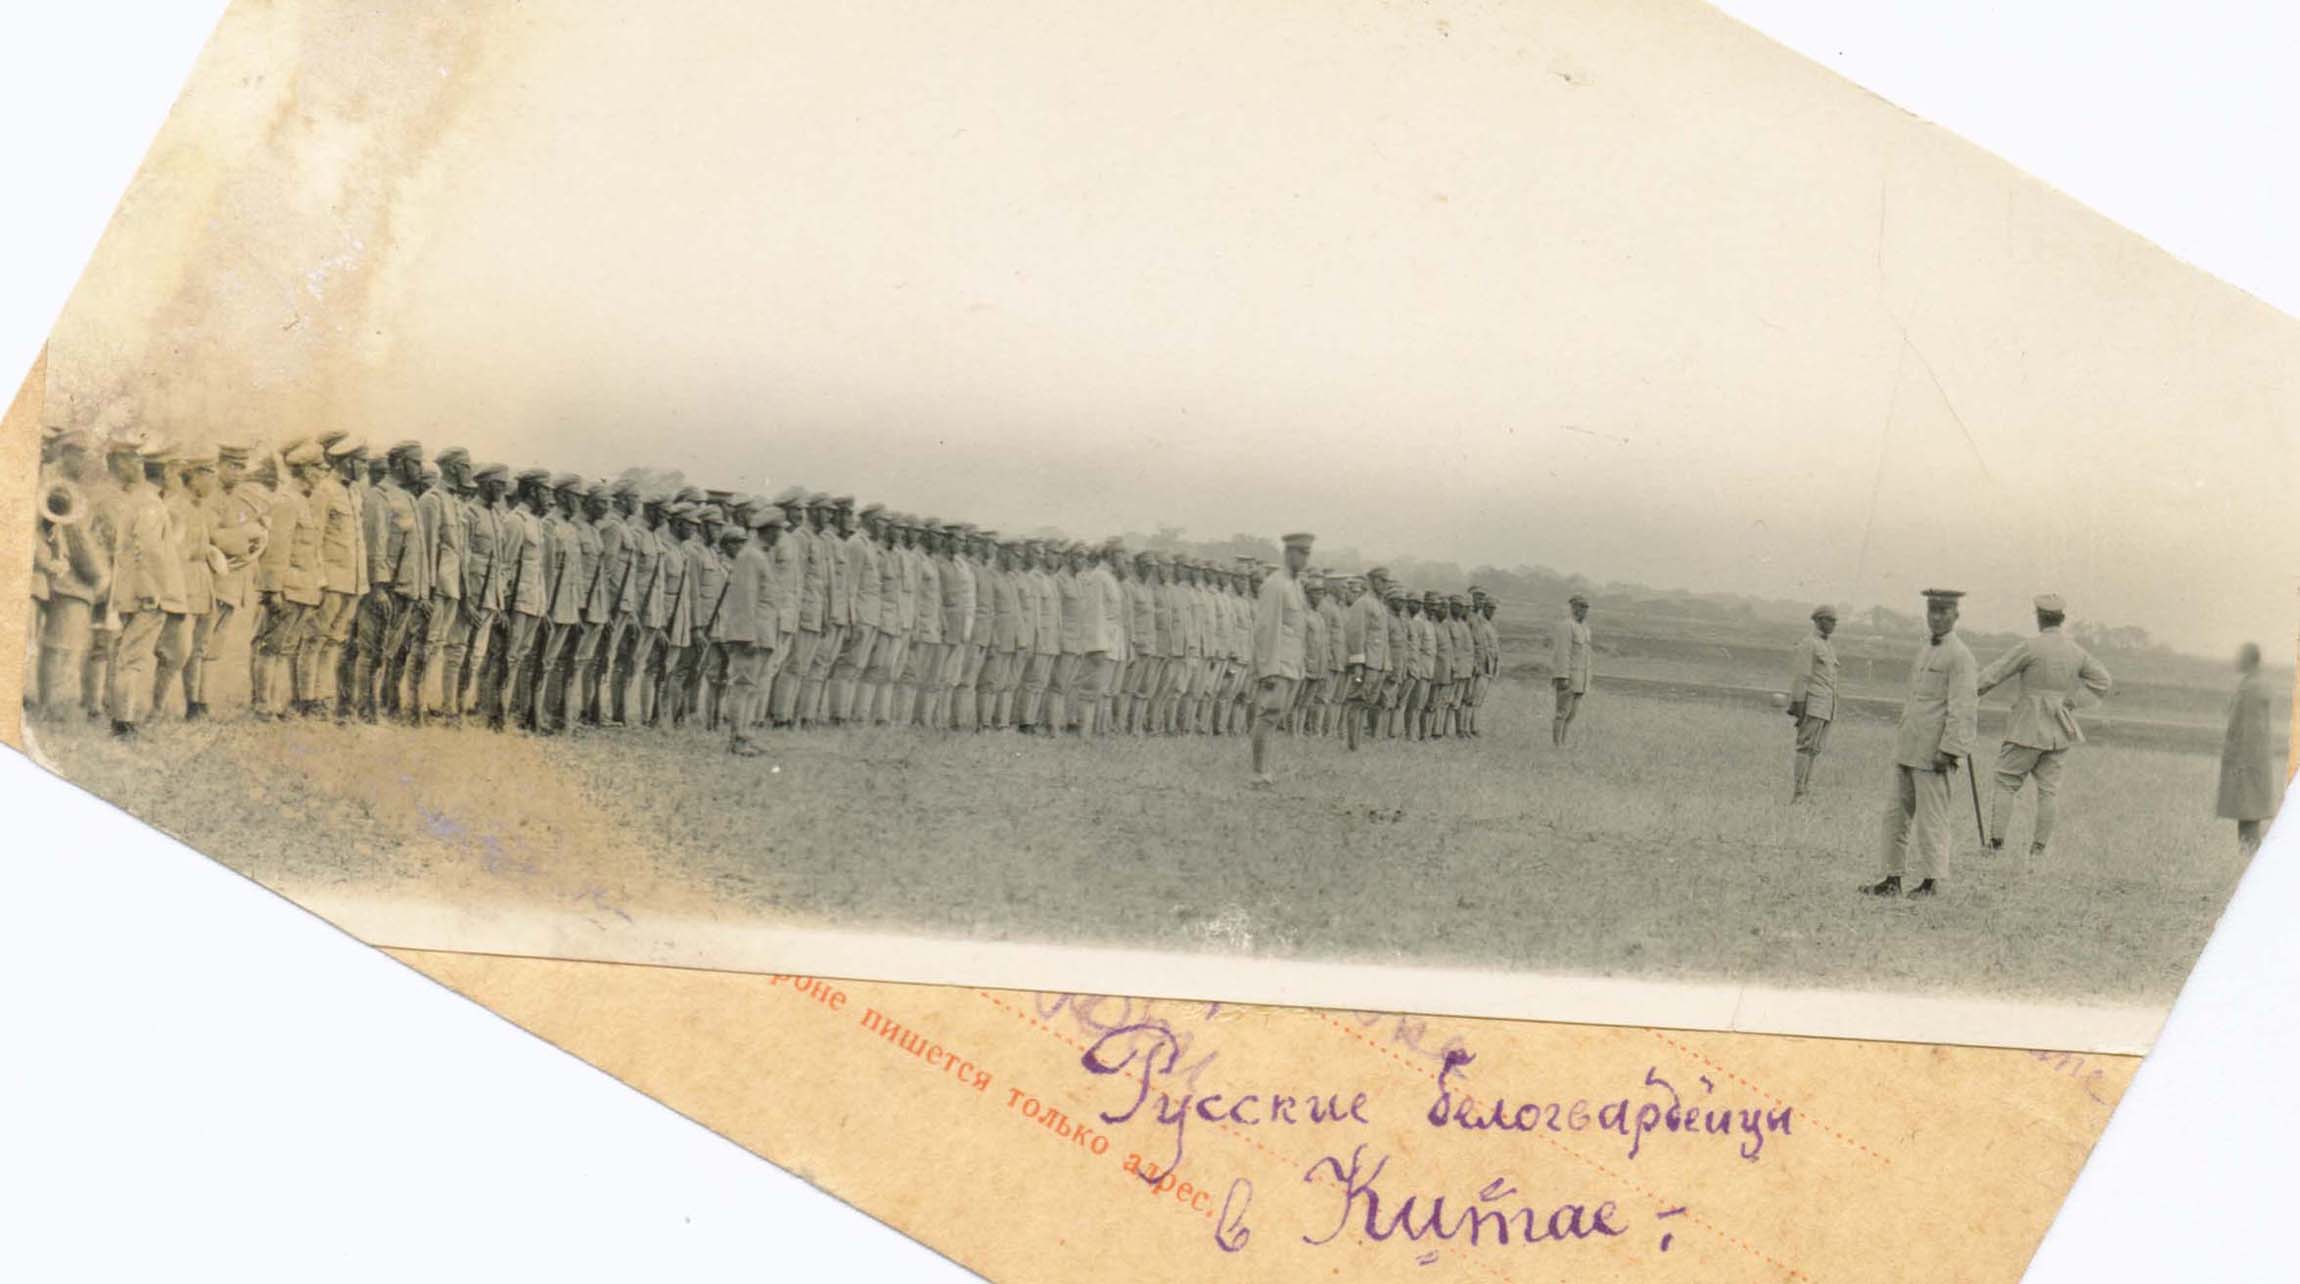 роне пишется только адрес.
Русские белогвардейцы
в Китае: